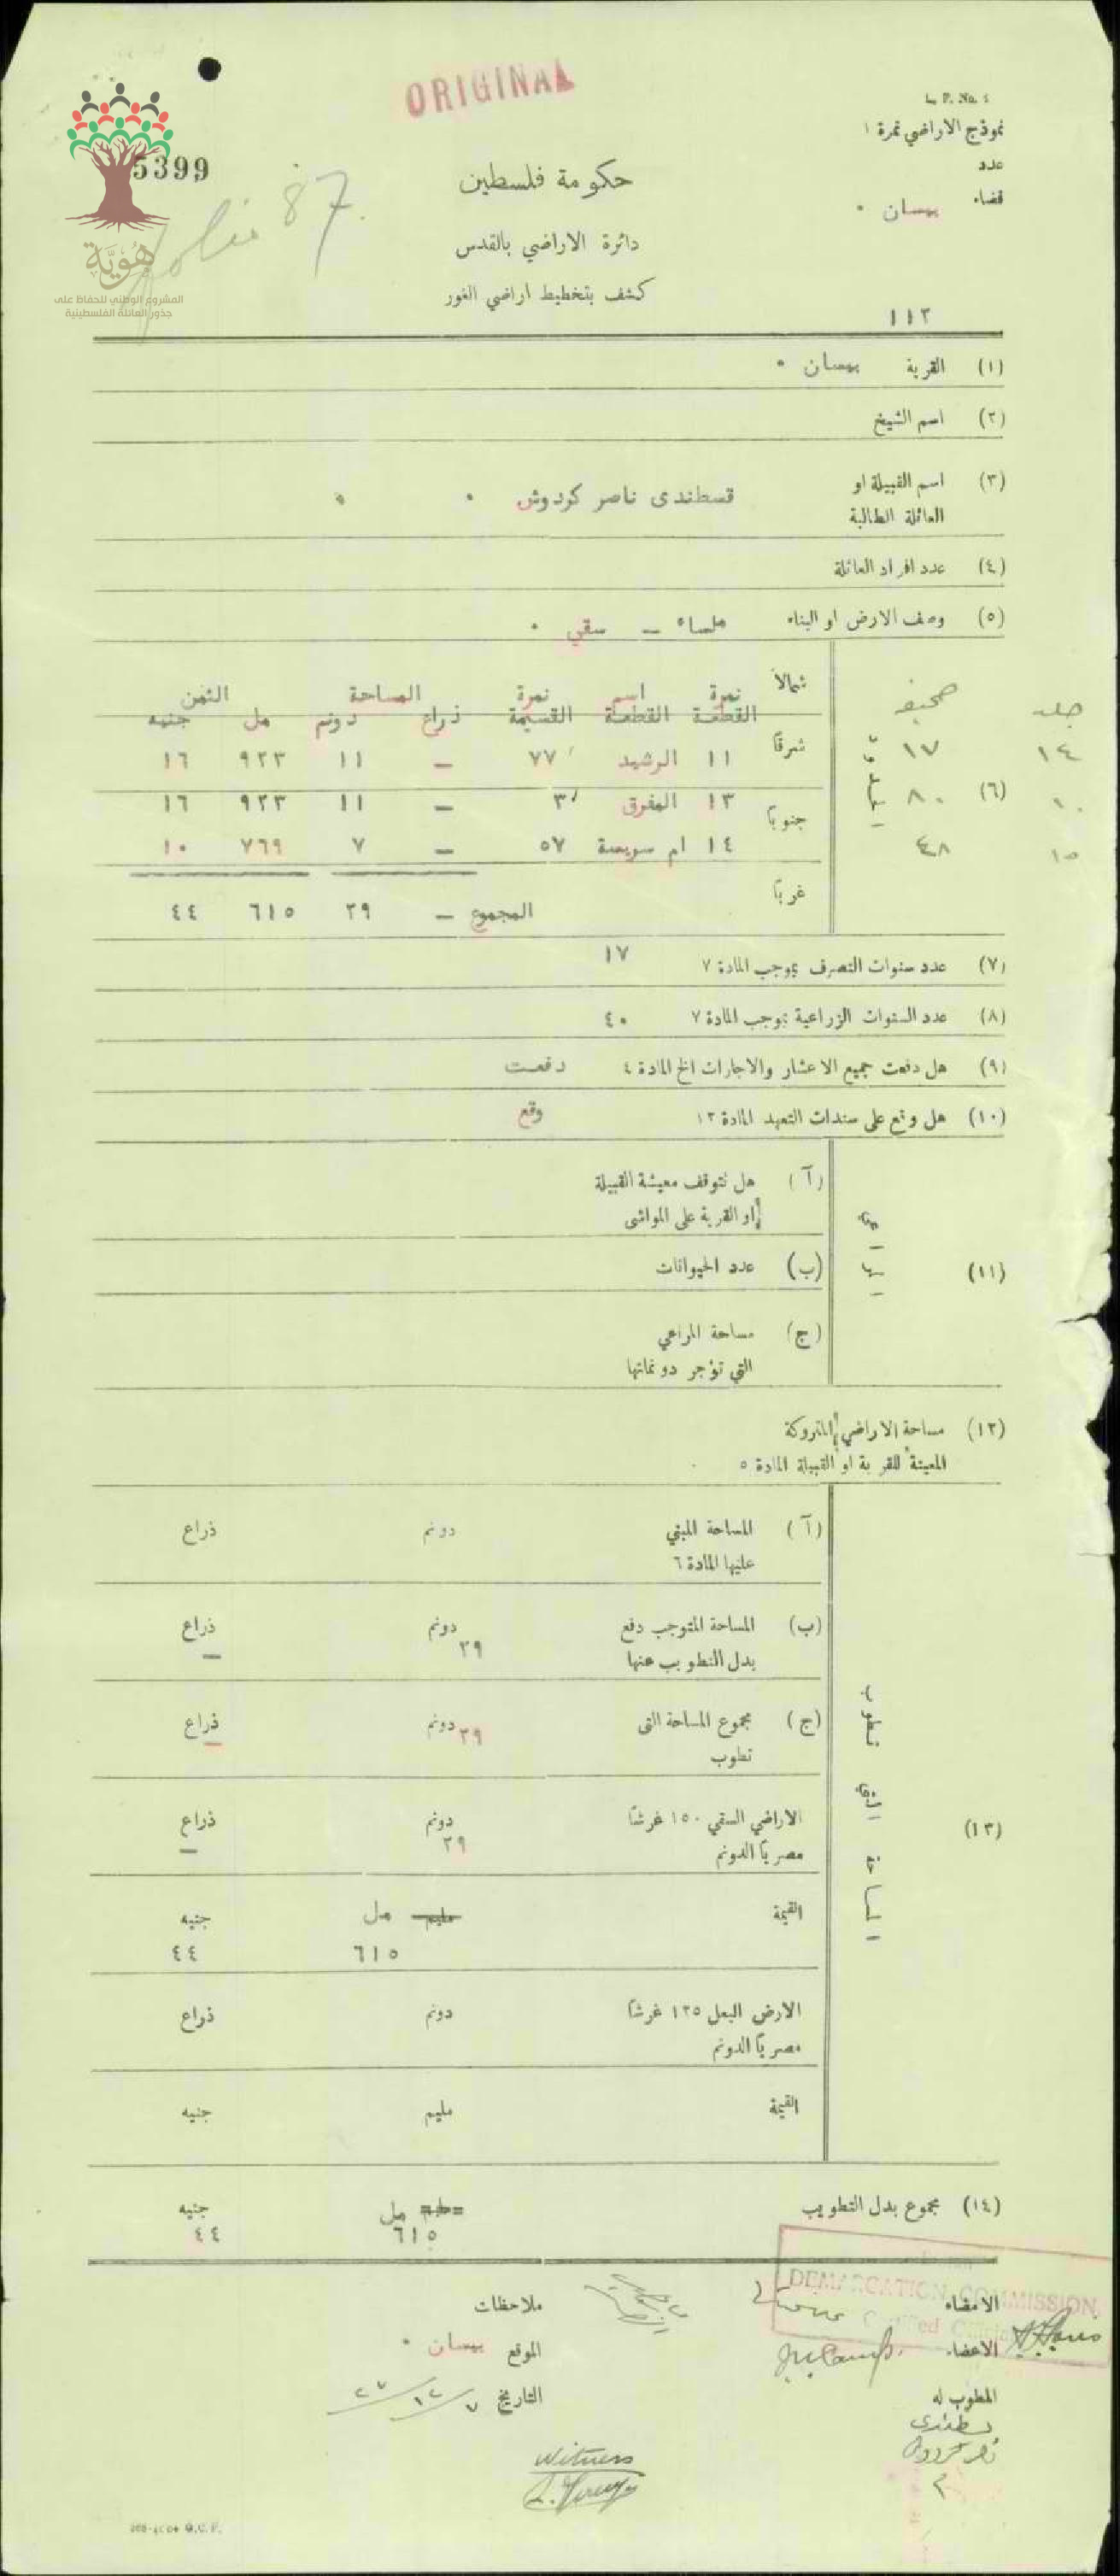 ORIGINAL
L. P. No. 1
نموذج الاراضي نمرة ١
عدد
قضاء بيسان
5399
87
حكومة فلسطين
دائرة الاراضي بالقدس
كشف بتخطيط اراضي الغور
١١٢
هُويَّة
المشروع الوطني للحفاظ على
جذور العائلة الفلسطينية
(١) القرية بيسان
(٢) اسم الشيخ
(٣) اسم القبيلة او
العائلة الطالبة
قسطندى ناصر كردوش
(٤) عدد افراد العائلة
(٥) وصف الارض او البناء ملساء – سقي
(٦) الحدود
شمالاً
شرقاً
جنوباً
غرباً
جلد صحيفة
١٤ ١٧
١٠ ٨٠
١٥ ٤٨
نمرة القطعة اسم القطعة نمرة القسيمة المساحة ذراع دونم الثمن مل جنيه
١١ الرشيد ٧٧ – ١١ ٩٢٣ ١٦
١٣ المفرق ٣ – ١١ ٩٢٣ ١٦
١٤ ام سريسة ٥٧ – ٧ ٧٦٩ ١٠
المجموع – ٢٩ ٦١٥ ٤٤
(٧) عدد سنوات التصرف بموجب المادة ٧ ١٧
(٨) عدد السنوات الزراعية بموجب المادة ٧ ٤٠
(٩) هل دفعت جميع الاعشار والاجارات الخ المادة ٤ دفعت
(١٠) هل وقع على سندات التعهد المادة ١٣ وقع
(١١) المراعي
(آ) هل تتوقف معيشة القبيلة
او القرية على المواشى
(ب) عدد الحيوانات
(ج) مساحة المراعي
التي تؤجر دونماتها
(١٢) مساحة الاراضي المتروكة
المعينة للقرية او القبيلة المادة ٥
(١٣) المساحة التي تطوب
(آ) المساحة المبني دونم ذراع
عليها المادة ٦
(ب) المساحة المتوجب دفع دونم ذراع
بدل التطويب عنها ٢٩ –
(ج) مجموع المساحة التى ٢٩ دونم ذراع
تطوب –
الاراضي السقي ١٥٠ غرشاً دونم ذراع
مصرياً الدونم ٢٩ –
القيمة مليم مل جنيه
٦١٥ ٤٤
الارض البعل ١٢٥ غرشاً دونم ذراع
مصرياً الدونم
القيمة مليم جنيه
(١٤) مجموع بدل التطويب مل جنيه
٦١٥ ٤٤
DEMARCATION COMMISSION
الامضاء
الاعضاء
ملاحظات
الموقع بيسان
التاريخ ٧/١٢/٢٧
المطوب له
قسطندى
ناصر كردوش
Witness